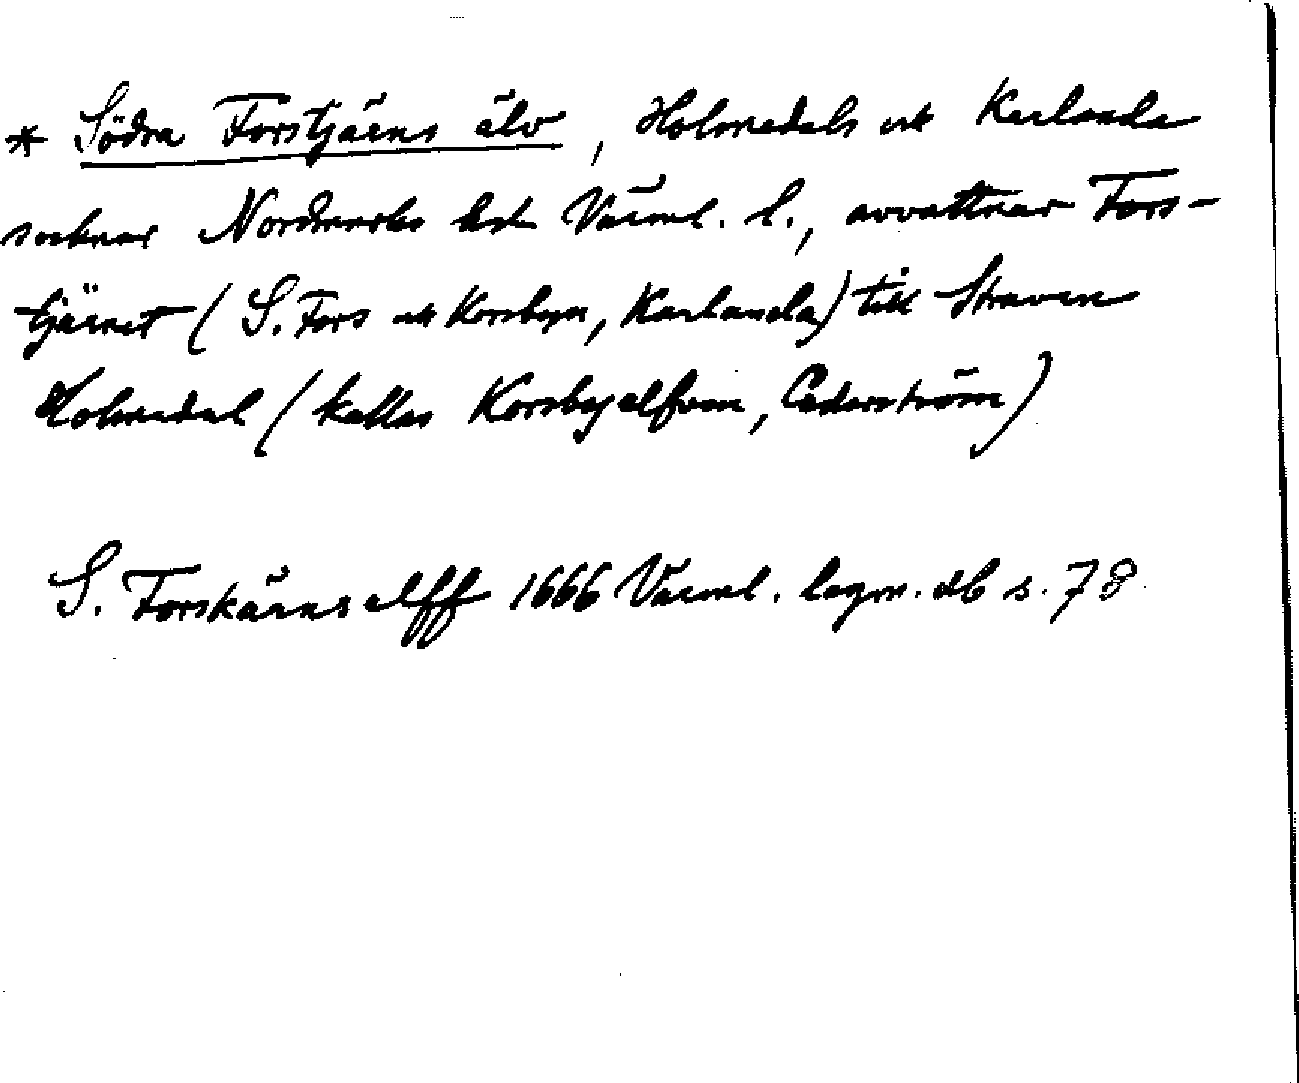 * Södra Forstjärns älv, Holmedals och Karlanda
socknar Nordmarks hd Värml. l., avvattnar Fors-
tjärnet (S. Fors och Korsbyn, Karlanda) till Straven
Holmedal (kallas Korsbyelfven, Cederström)
S. Forskärns elff 1666 Värml. lagm. db s. 78